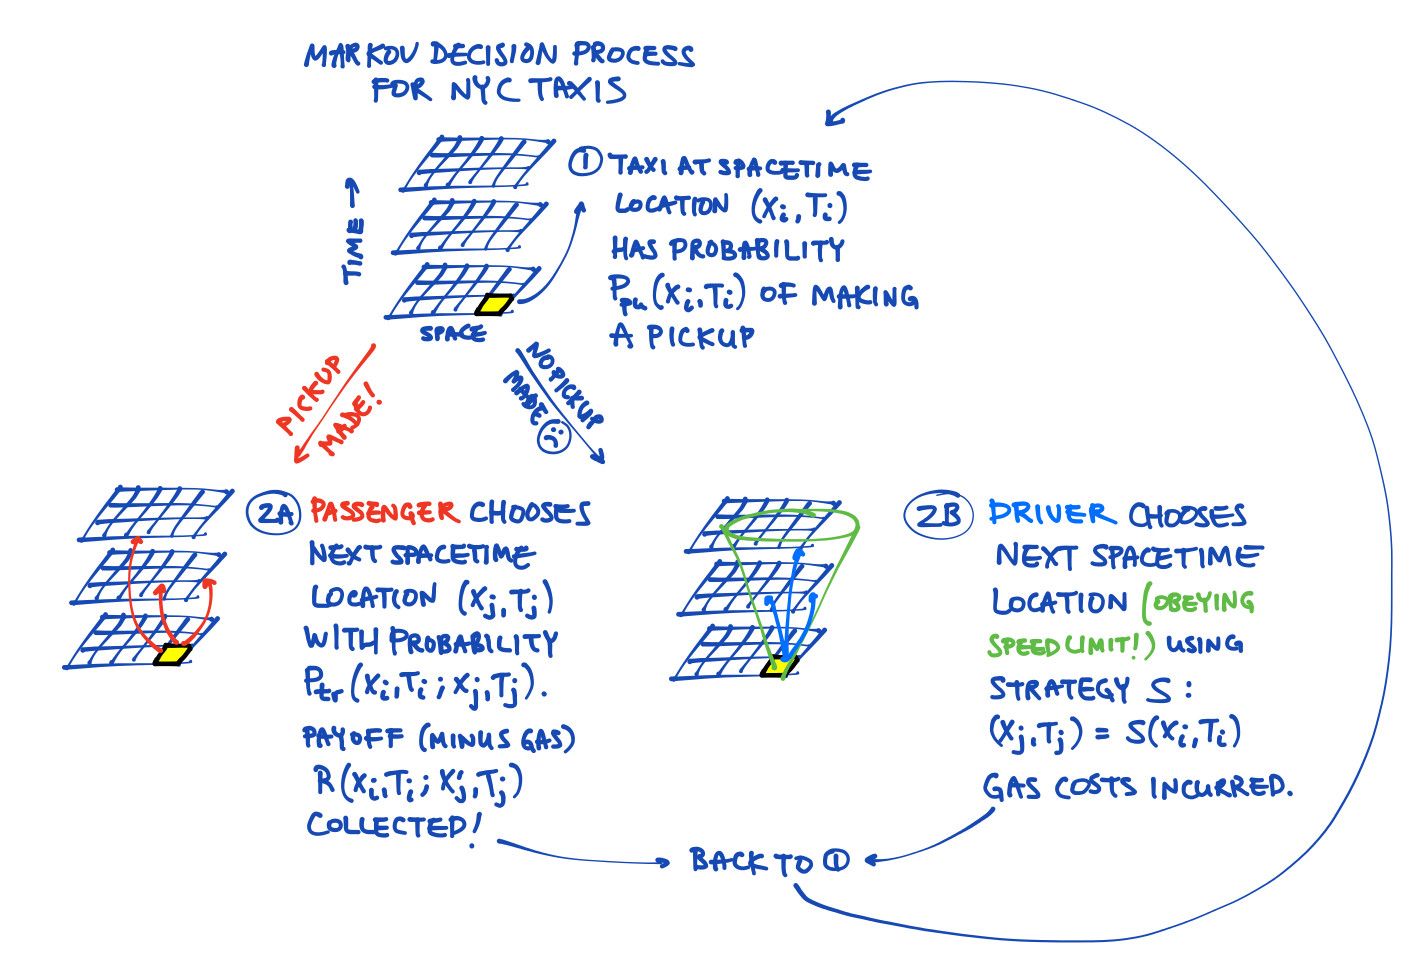 MARKOV DECISION PROCESS
FOR NYC TAXIS
TIME →
SPACE
① TAXI AT SPACETIME
LOCATION (Xi, Ti)
HAS PROBABILITY
Ppu (Xi, Ti) OF MAKING
A PICKUP
PICKUP
MADE!
NO PICKUP
MADE ☹
2A PASSENGER CHOOSES
NEXT SPACETIME
LOCATION (Xj, Tj)
WITH PROBABILITY
Ptr (Xi, Ti ; Xj, Tj).
PAYOFF (MINUS GAS)
R (Xi, Ti ; Xj, Tj)
COLLECTED!
2B DRIVER CHOOSES
NEXT SPACETIME
LOCATION (OBEYING
SPEED LIMIT!) USING
STRATEGY S :
(Xj, Tj) = S(Xi, Ti)
GAS COSTS INCURRED.
BACK TO ①